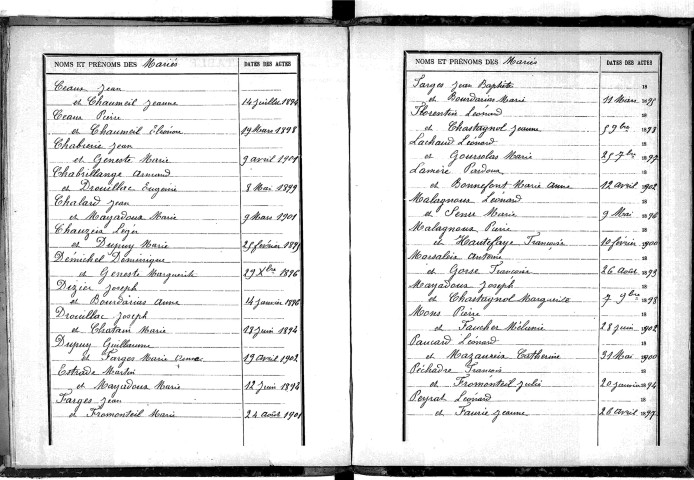 NOMS ET PRÉNOMS DES Mariés DATES DES ACTES
Ceaux Jean
et Chaumeil Jeanne 14 juillet 1894
Ceaux Pierre
et Chaumeil 19 Mars 1898
Chabrerie Jean
et Geneste Marie 9 avril 1901
Chabrillange Armand
et Drouillac Eugénie 8 Mai 1899
Chalard Jean
et Mayadoux Marie 9 Mars 1901
Chauzeix Léger
et Dupuy Marie 25 février 1895
Démichel Dominique
et Geneste Marguerite 29 Xbre 1896
Dezier Joseph
et Bourdarias Anne 14 janvier 1896
Drouillac Joseph
et Chatain Marie 28 juin 1894
Dupuy Guillaume
et Farges Marie 19 avril 1902
Estrade Martin
et Mayadoux Marie 12 juin 1894
Farges Jean
et Fromonteil Marie 24 août 1901
NOMS ET PRÉNOMS DES Mariés DATES DES ACTES
Farges Jean Baptiste 18
et Bourdarias Marie 11 Mars 1895
Florentin Léonard 18
et Chastagnol Jeanne 5 9bre 1893
Lachaud Léonard 18
et Goursolas Marie 25 7bre 1897
Lamère Pardoux 18
et Bonnefont Marie Anne 12 avril 1902
Malagnoux Léonard 18
et Senut Marie 9 Mai 1896
Malagnoux Pierre 18
et Hautefaye Françoise 10 février 1900
Marsaleix Antoine 18
et Gorse Françoise 26 Août 1893
Mayadoux Joseph 18
et Chastagnol Marguerite 7 9bre 1898
Mons Pierre 18
et Faucher Mélanie 28 juin 1902
Paucard Léonard 18
et Mazaureix Catherine 31 Mai 1900
Péchadre François 18
et Fromonteil Julie 20 janvier 1894
Peyrat Léonard 18
et Faurie Jeanne 26 avril 1897